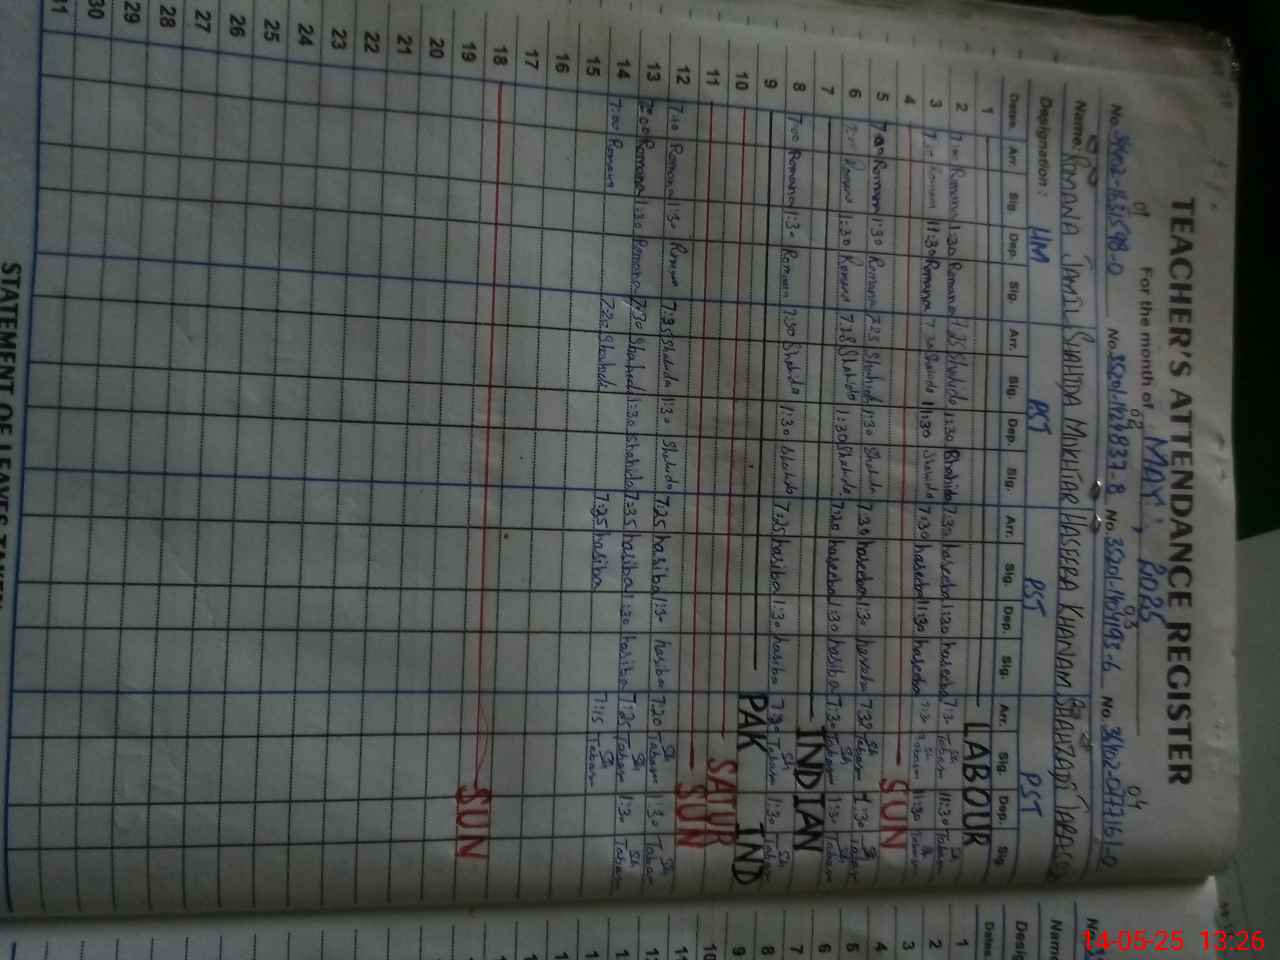 TEACHER'S ATTENDANCE REGISTER
For the month of MAY, 2025
01 02 03 04
No. No. 35201-1424837-8 No. 35201-1404193-6 No. 34402-0477161-0
Name: ROMANA JAMIL SHAHIDA MUKHTAR HASEEBA KHANAM SHAHZADI TABASSUM
Designation: HM PST PST PST
Dates. Arr. Sig. Dep. Sig. Arr. Sig. Dep. Sig. Arr. Sig. Dep. Sig. Arr. Sig. Dep. Sig.
1 LABOUR
2 Romana 1:30 Romana 7:25 Shahida 11:30 Shahida 7:30 haseeba 11:30 haseeba 7:30 Sh Tabasm 11:30 Sh Tabasm
3 Romana 11:30 Romana Shahida 11:30 Shahida 7:30 haseeba 11:30 haseeba Sh Tabasm 11:30 Sh Tabasm
4 SUN
5 7:00 Romana 1:30 Romana 7:25 Shahida 1:30 Shahida 7:30 haseeba 1:30 haseeba Sh Tabasm 1:30 Sh Tabasm
6 Romana 1:30 Romana 7:28 Shahida 1:30 Shahida 7:20 haseeba 1:30 hasiba 7:30 Sh Tabasm 1:30 Sh Tabasm
7 INDIAN
8 7:00 Romana 1:30 Romana 7:30 Shahida 1:30 Shahida 7:25 hasiba 1:30 hasiba 7:30 Sh Tabasm 1:30 Sh Tabasm
9 PAK IND
10 SATUR
11 SUN
12 7:10 Romana 1:30 Romana 7:35 Shahida 1:30 Shahida 7:25 hasiba 1:30 hasiba 7:20 Sh Tabasm 1:30 Sh Tabasm
13 7:00 Romana 1:30 Romana 7:30 Shahida 1:30 Shahida 7:35 hasiba 1:30 hasiba 7:25 Sh Tabasm 1:30 Sh Tabasm
14 7:00 Romana 7:20 Shahida 7:25 hasiba 7:15 Sh Tabasm
15
16
17
18 SUN
19
20
21
22
23
24
25
26
27
28
29
30
31
STATEMENT OF LEAVES TAKEN
Dates.
1
2
3
4
5
6
7
8
9
10
14-05-25 13:26